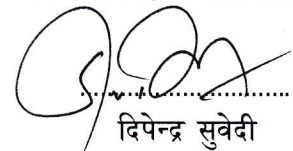 दिपेन्द्र सुवेदी